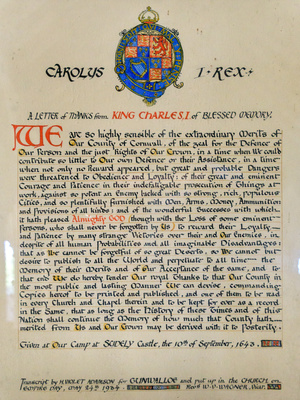 CAROLUS I · REX
A LETTER of THANKS from KING CHARLES I. of BLESSED MEMORY.
WE are so highly sensible of the extraordinary Merits of
Our County of Cornwall, of the zeal for the Defence of
Our Person and the just Rights of Our Crown, in a time when We could
contribute so little to Our own Defence or their Assistance, in a time
when not only no Reward appeared, but great and probable Dangers
were threatened to Obedience and Loyalty; of their great and eminent
Courage and Patience in their indefatigable prosecution of things at
work, against so potent an Enemy backed with so strong, rich, populous
Cities, and so plentifully furnished with Men, Arms, Money, Ammunition
and Provisions of all kinds: and of the wonderful Success with which
it hath pleased Almighty GOD (though with the Loss of some eminent
Persons, who shall never be forgotten by Us) to reward their Loyalty
and Patience by many strange Victories over their and Our Enemies, in
despite of all human Probabilities and all imaginable Disadvantages:
that as We cannot be forgetful of so great Deserts, so We cannot but
desire to publish to all the World and perpetuate to all time the
Memory of their Merits and of Our Acceptance of the same, and to
that end We do hereby tender Our royal Thanks to that Our County in
the most public and lasting Manner We can devise, commanding
Copies hereof to be printed and published, and one of them to be read
in every Church and Chapel therein and to be kept for ever as a record
in the Same, that as long as the History of these Times and of this
Nation shall continue the Memory of how much that County hath
merited from Us and Our Crown may be derived with it to Posterity.
Given at Our Camp at SUDELY Castle, the 10th of September, 1643.
Transcript by for GUNWALLOE and put up in the CHURCH on
EMPIRE DAY, May 24th 1934.